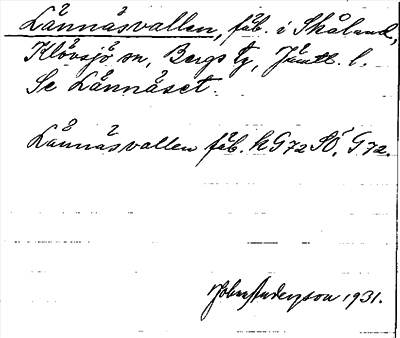 Lännäsvallen, fäb. i Skålan,
Klövsjö sn, Bergs tg, Jämtl. l.
Se Lännäset.
Lännäsvallen fäb. k G 72 SÖ, G. 72.
John Anderzson 1931.